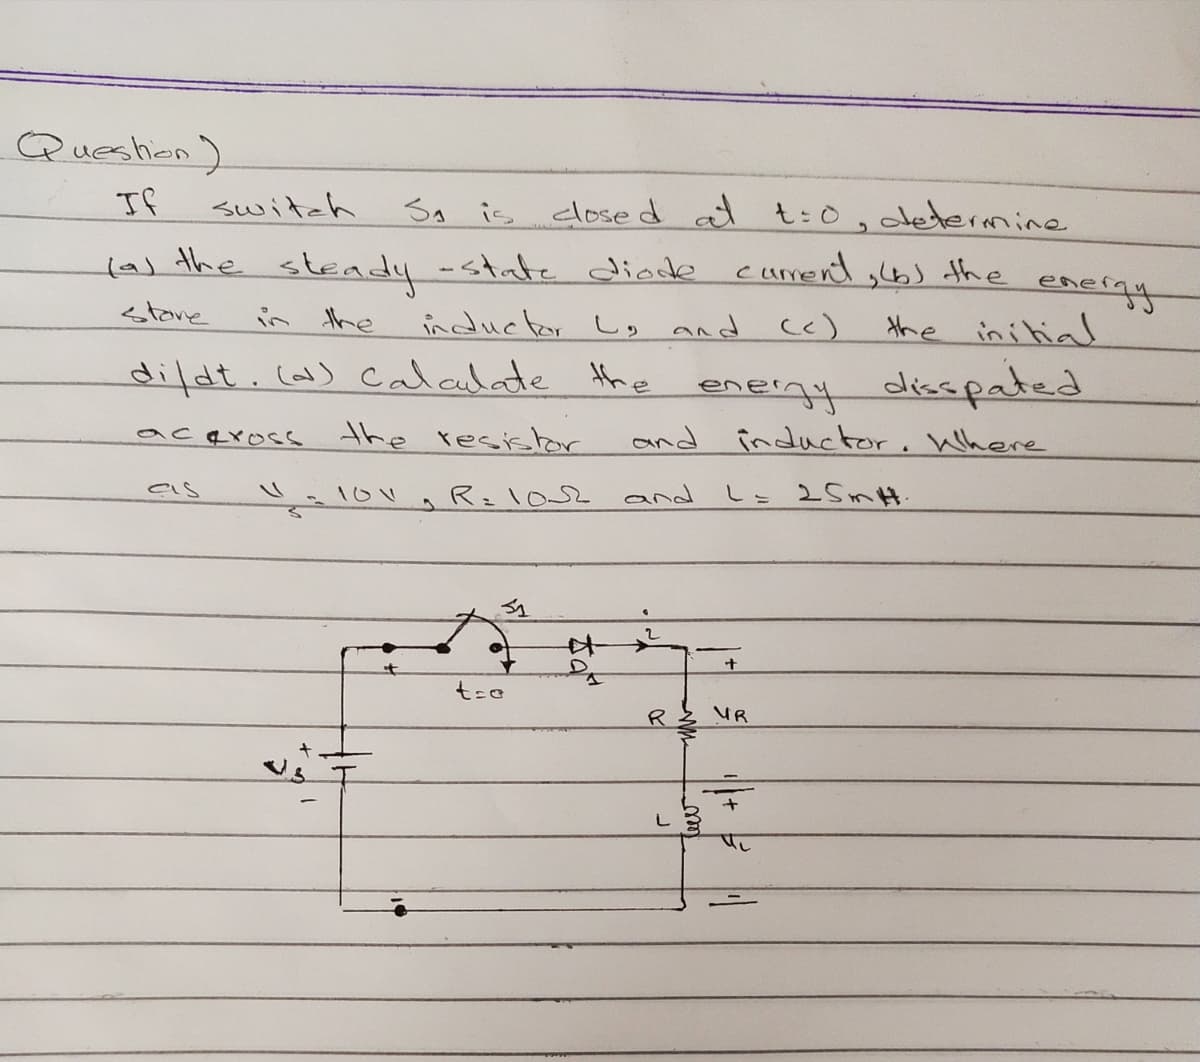 Question)
If switch S1 is closed at t=0, determine
(a) the steady-state diode current, (b) the energy
store in the inductor L, and (c) the initial
di/dt. (d) Calculate the energy disspated
accross the resistor and inductor. Where
as Vs = 10V, R = 10Ω and L = 25mH.
S1
i
+
D1
+
t=0
R
VR
+
Vs
-
-
+
L
VL
-
-